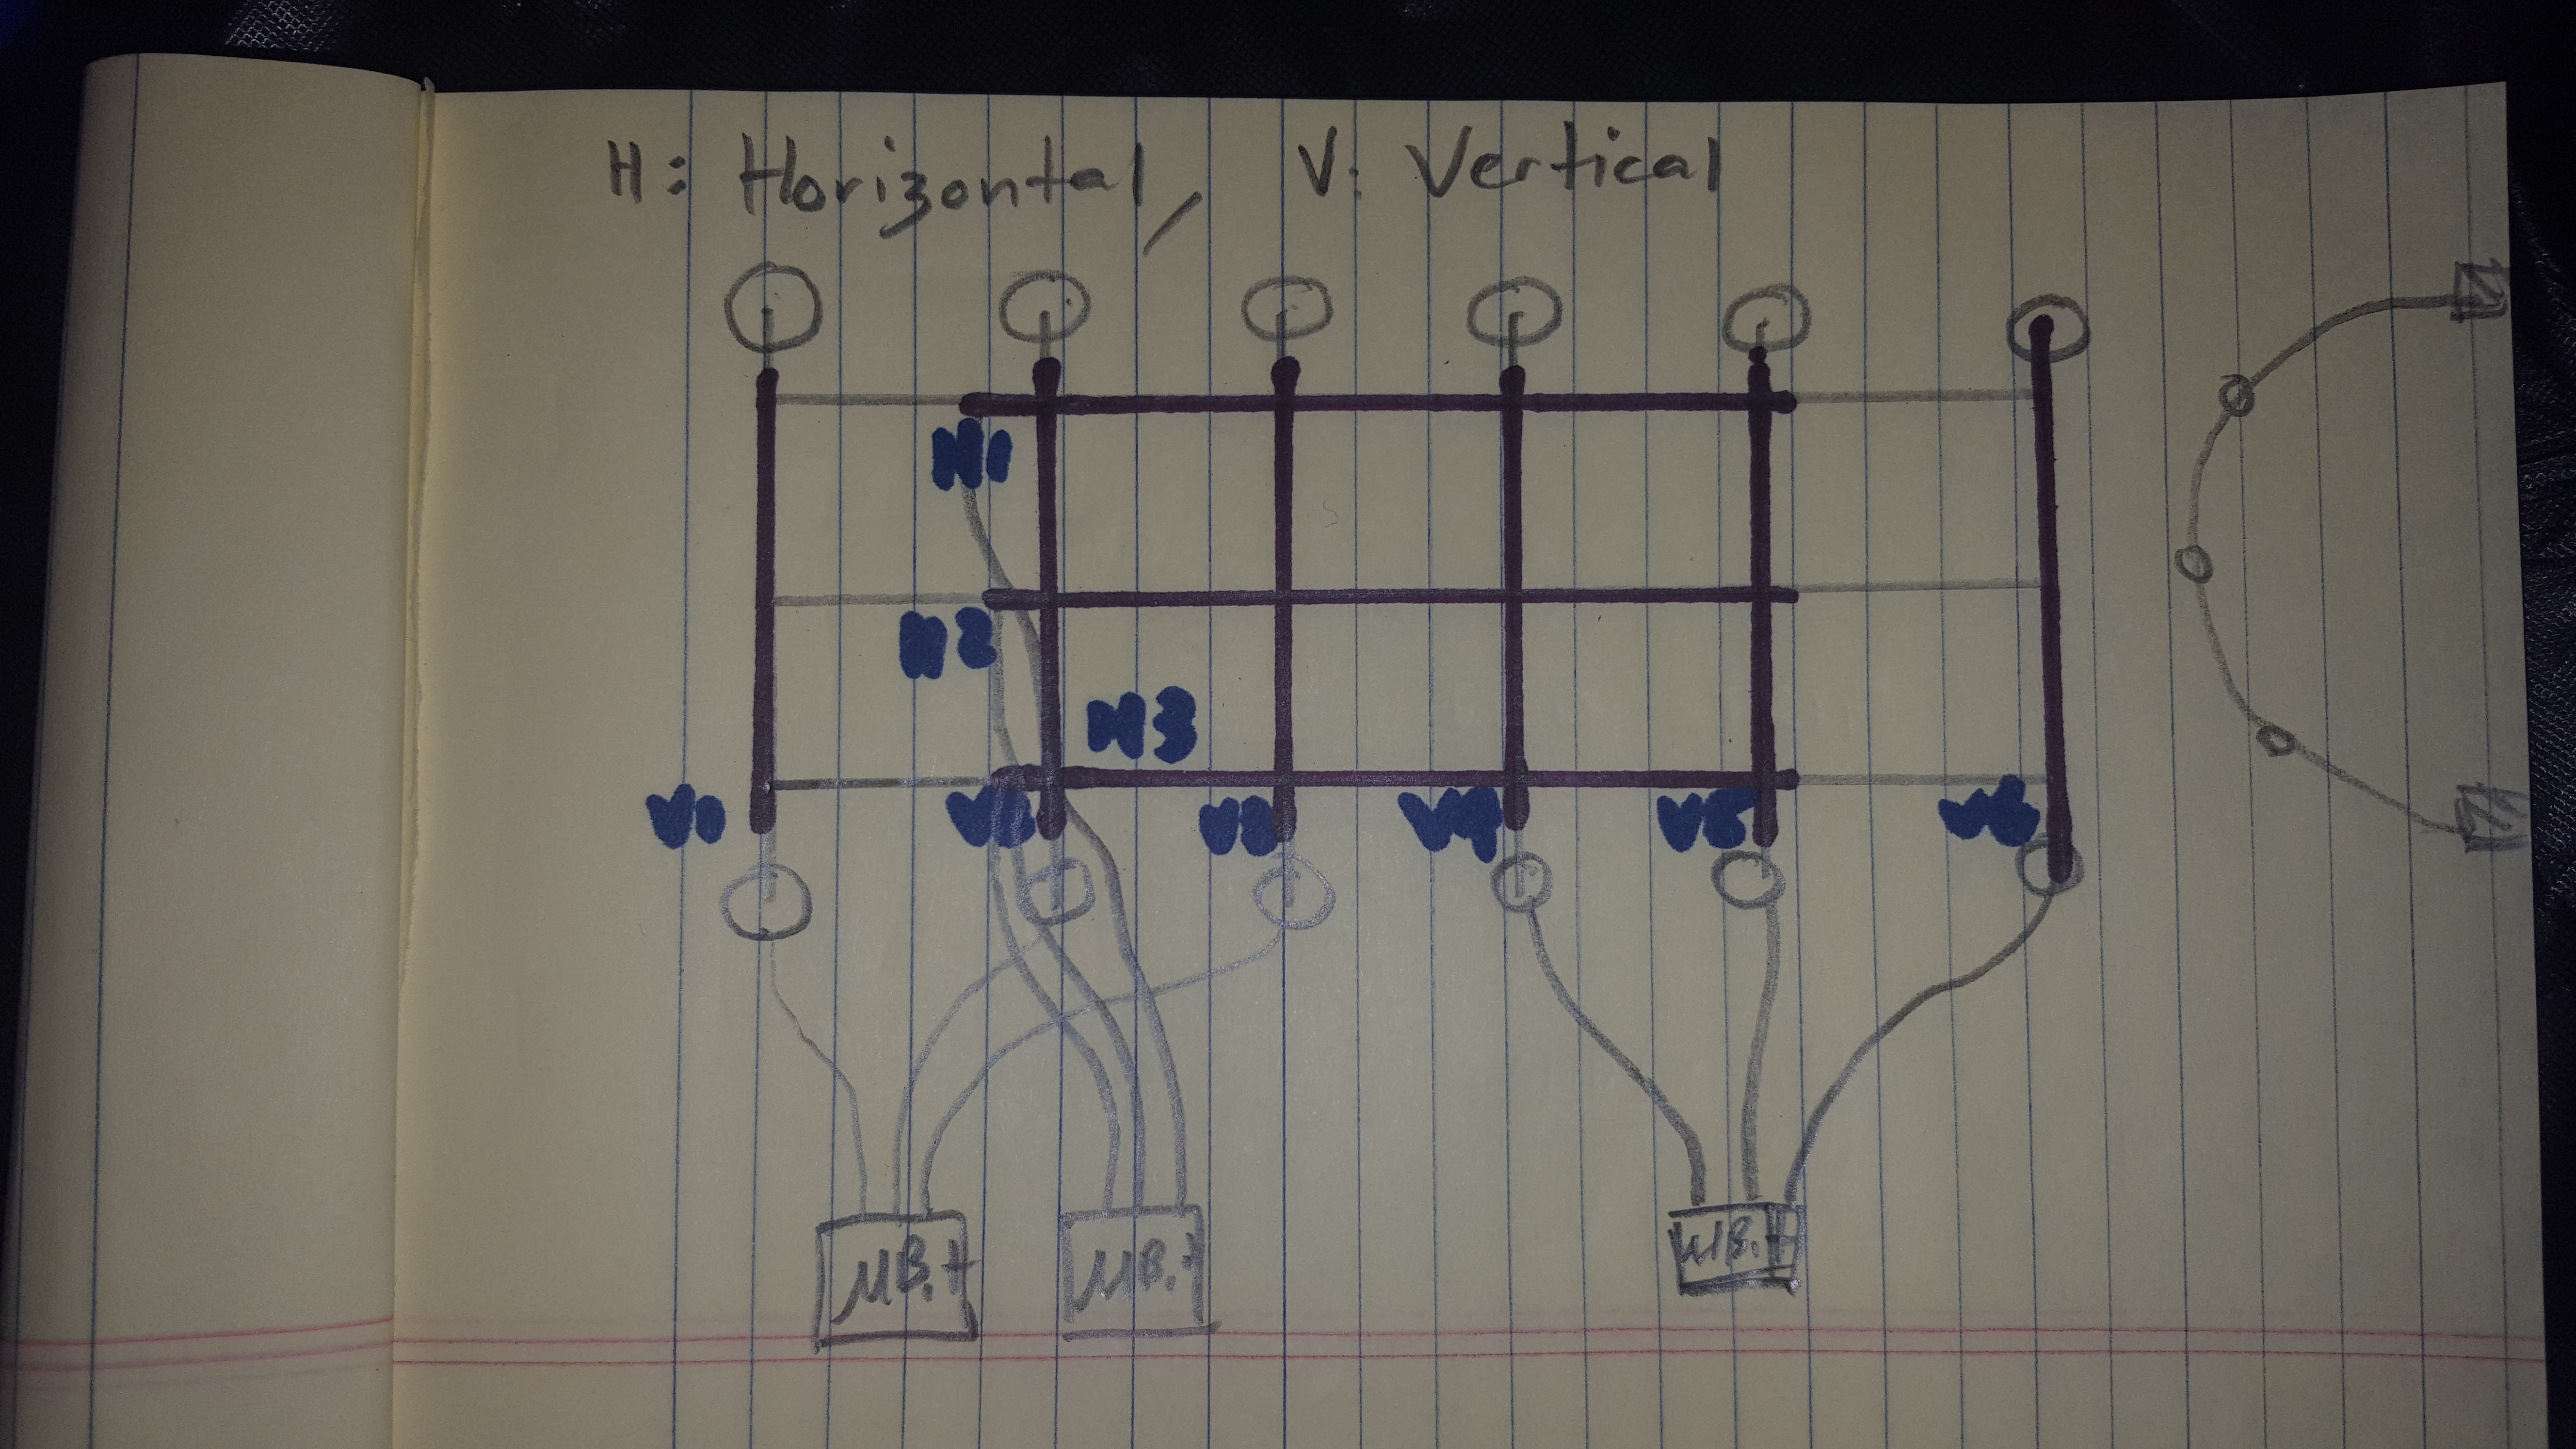 H: Horizontal / V: Vertical
H1
H2
H3
V1
V2
V3
V4
V5
V6